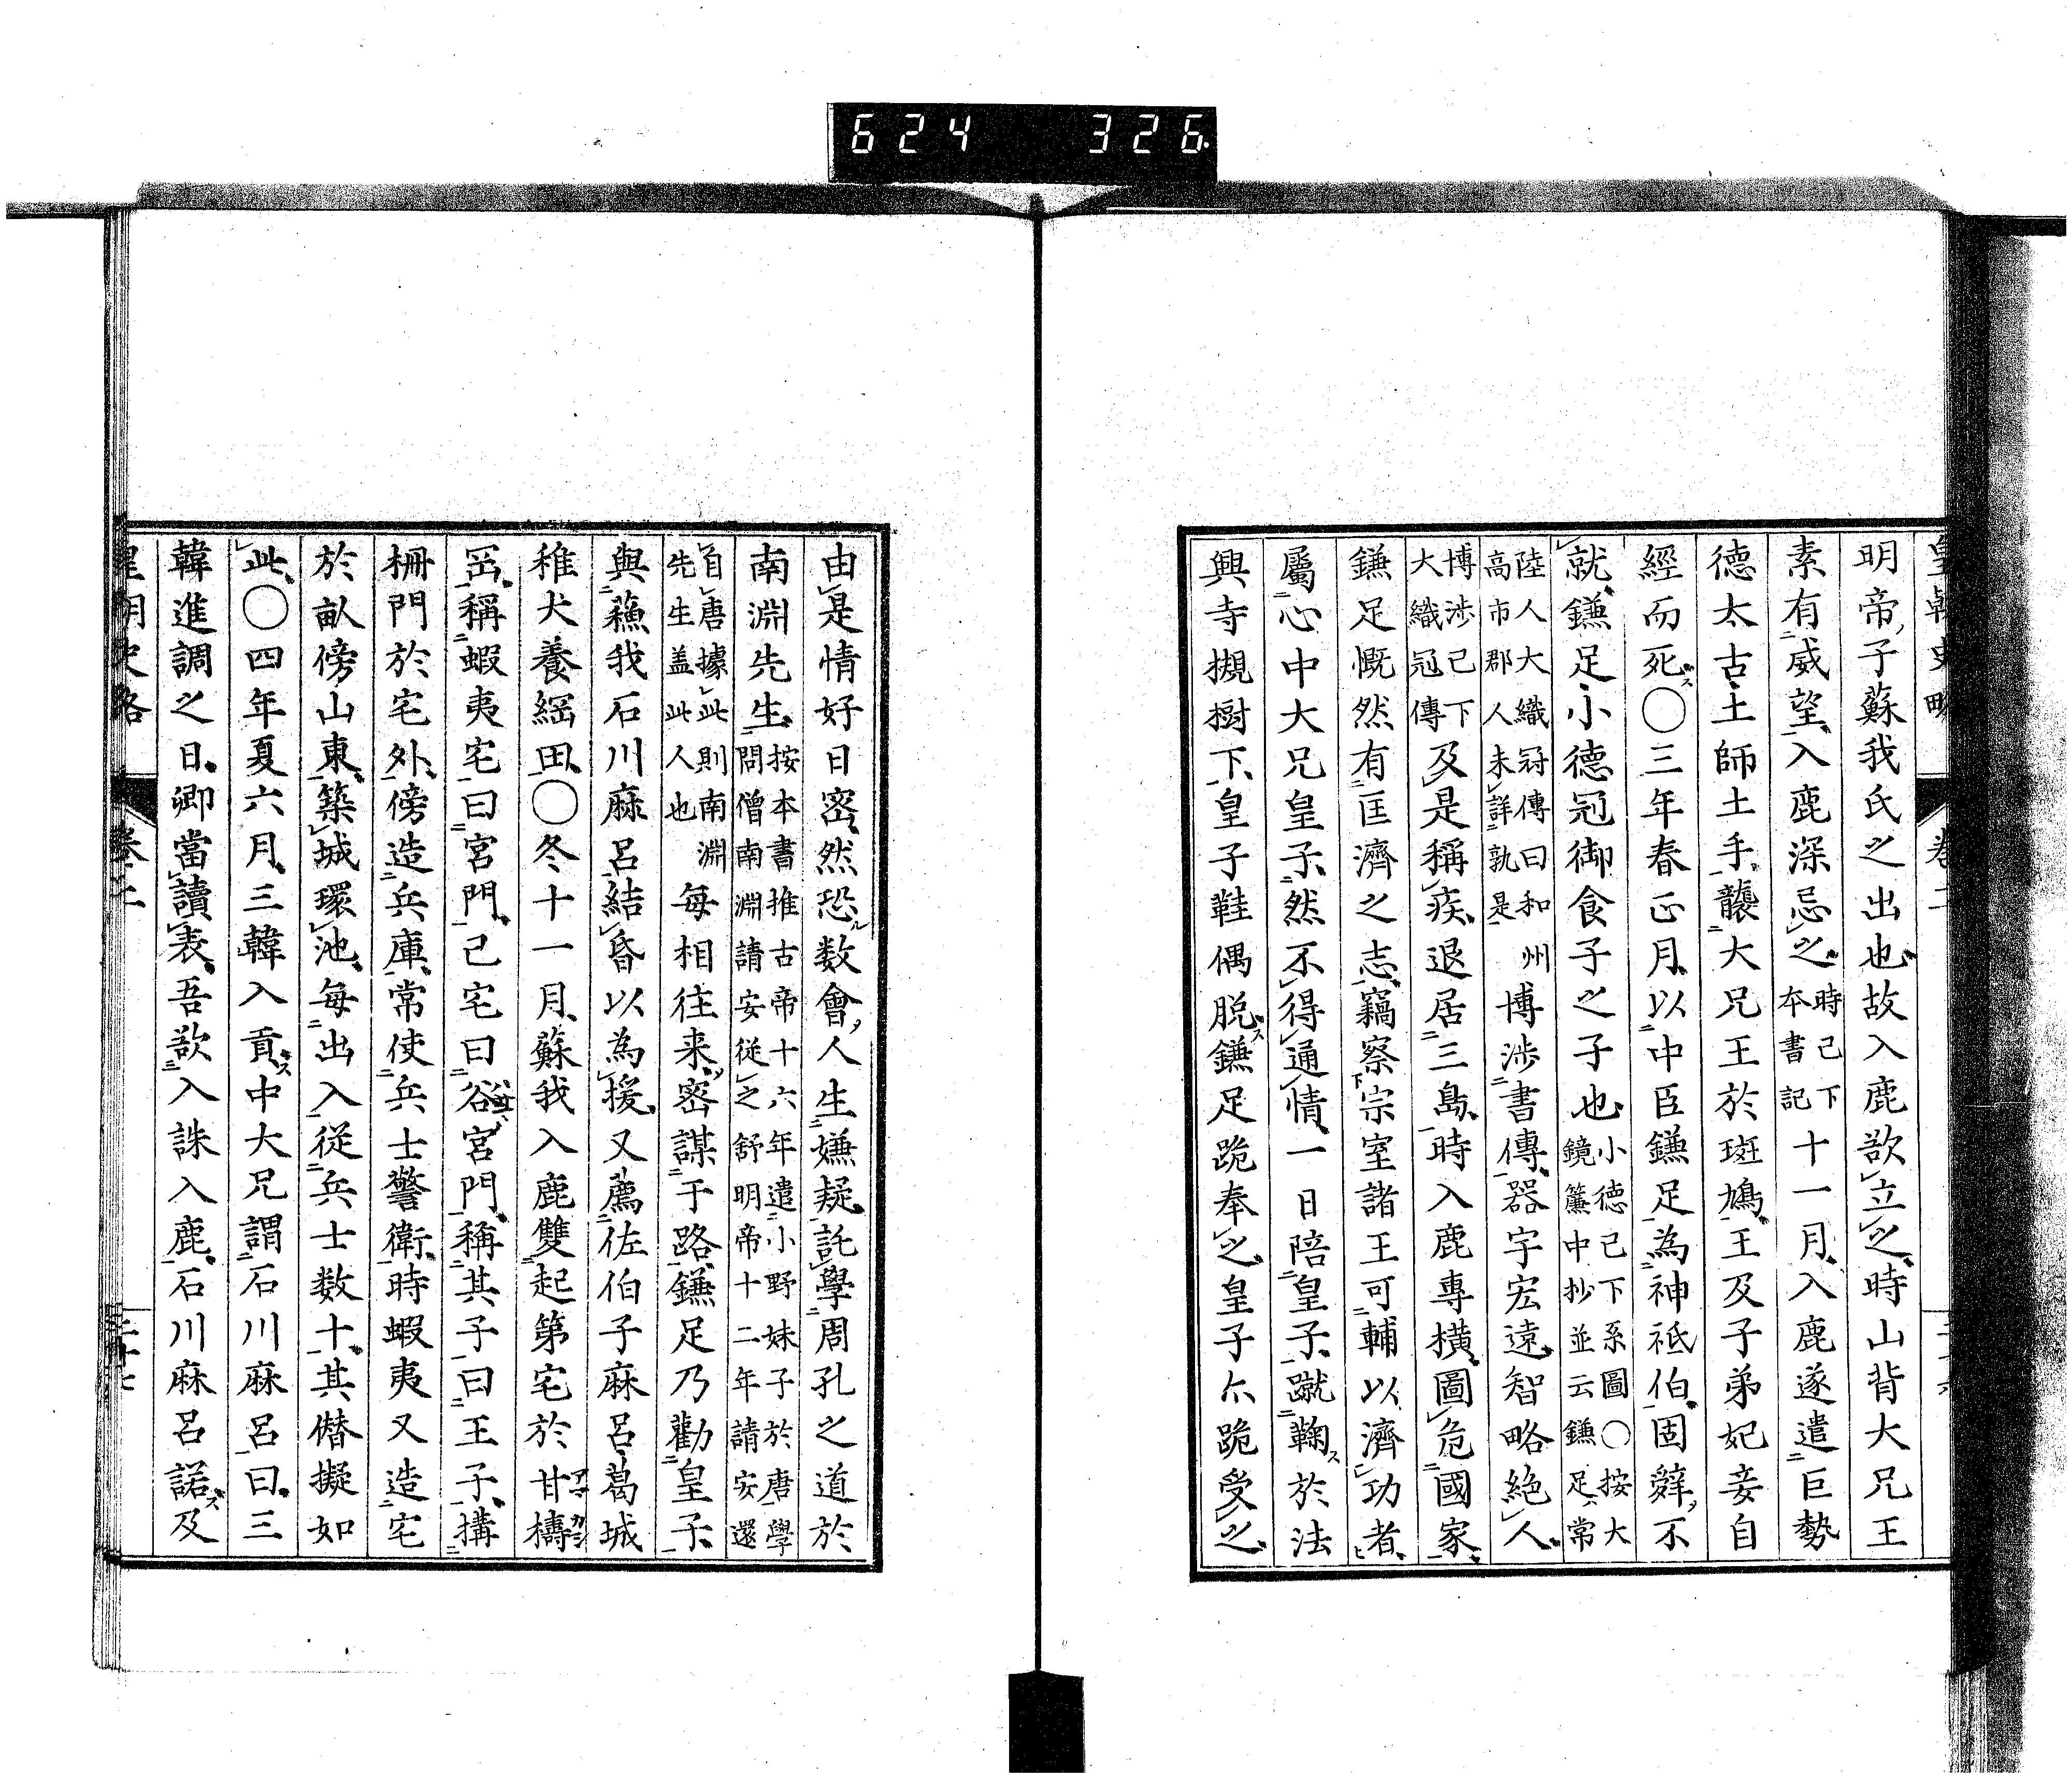 624 326
明帝子蘇我氏之出也故入鹿欲立之時山背大兄王
素有威望入鹿深忌之時己下本書記十一月入鹿遂遣巨勢
德太古土師土手襲大兄王於斑鳩王及子弟妃妾自
經而死〇三年春正月以中臣鎌足為神祇伯固辭不
就鎌足小德冠御食子之子也小德己下系圖〇按大鏡簾中抄並云鎌足常
陸人大織冠傳曰和州高市郡人未詳孰是博渉書傳器宇宏遠智略絶人
博渉己下大織冠傳及是稱疾退居三島時入鹿專橫圖危國家
鎌足慨然有匡濟之志竊察宗室諸王可輔以濟功者
屬心中大兄皇子然不得通情一日陪皇子蹴鞠於法
興寺槻樹下皇子鞋偶脱鎌足跪奉之皇子亦跪受之
由是情好日密然恐数會人生嫌疑託學周孔之道於
南淵先生按本書推古帝十六年遣小野妹子於唐學問僧南淵請安從之舒明帝十二年請安還
自唐據此則南淵先生盖此人也每相往来密謀于路鎌足乃勸皇子
與蘓我石川麻呂結昏以為援又薦佐伯子麻呂葛城
稚犬養綱田〇冬十一月蘇我入鹿雙起第宅於甘檮
岡稱蝦夷宅曰宮門己宅曰谷宮門稱其子曰王子搆
柵門於宅外傍造兵庫常使兵士警衛時蝦夷又造宅
於畝傍山東築城環池每出入從兵士数十其僭擬如
此〇四年夏六月三韓入貢中大兄謂石川麻呂曰三
韓進調之日卿當讀表吾欲入誅入鹿石川麻呂諾及